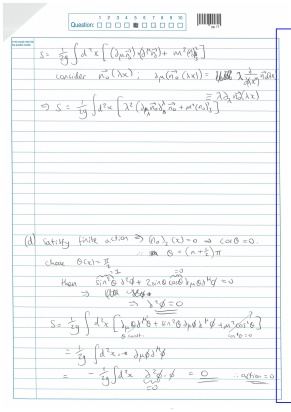 Question: 1 2 3 4 5 6 7 8 9 10
S = 1/2g ∫ d²x [ (∂μ n⃗₀)·(∂^μ n⃗₀) + m²(n₀)₃² ]
consider n⃗₀(λx); ∂μ(n⃗₀(λx)) =
≡ λ∂λ n⃗₀(λx)
⇒ S = 1/2g ∫ d²x [ λ² ∂μ n⃗₀ ∂ n⃗₀ + m²(n₀)₃² ]
(d) Satisfy finite action ⇒ (n₀)₃(x) = 0 ⇒ cosθ = 0.
∴ θ = (n+½)π
choose θ(x) = π/2
=1 =0
then sin²θ ∂²φ + 2 sinθ cosθ ∂μθ ∂^μφ = 0
⇒ ∂²φ = 0
S = 1/2g ∫ d²x [ ∂μθ ∂^μθ + sin²θ ∂μφ ∂^μφ + m² cos²θ ]
θ const. cos²θ=0
= 1/2g ∫ d²x ∂μφ ∂^μφ
= - 1/2g ∫ d²x ∂²φ · φ = 0 ∴ action = 0
=0